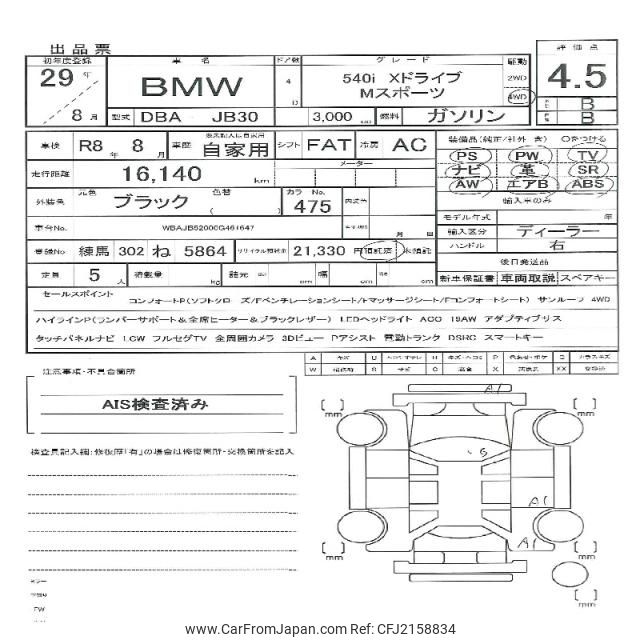 出品票
初年度登録 車名 ドア数 グレード 駆動 評価点
29年 8月 BMW 4 D 540i Xドライブ Mスポーツ 2WD 4WD 4.5
型式 DBA JB30 3,000 燃料 ガソリン B
B
車検 R8年8月 車歴 自家用 シフト FAT 冷房 AC 装備品(純正/社外 含) ○をつける
PS PW TV
走行距離 16,140 km メーター ナビ 革 SR
AW エアB ABS
外装色 元色 ブラック 色替 カラーNo. 475 内装色 輸入車のみ
モデル年式 年
車台No. WBAJB52000G461647 月 日 輸入区分 ディーラー
登録No 練馬 302 ね 5864 リサイクル預託金 21,330 円 預託済 未預託 ハンドル 右
後日発送品
定員 5人 積載量 kg 諸元 cm 幅 cm cm 新車保証書 車両取説 スペアキー
セールスポイント
コンフォートP(ソフトクローズ/Fベンチレーションシート/Fマッサージシート/Fコンフォートシート) サンルーフ 4WD
ハイラインP(ランバーサポート&全席ヒーター&ブラックレザー) LEDヘッドライト ACC 19AW アダプティブリス
タッチパネルナビ LCW フルセグTV 全周囲カメラ 3Dビュー Pアシスト 電動トランク DSRC スマートキー
A キズ U P G
W S C X XX
注意事項・不具合箇所
AIS検査済み
検査員記入欄:修復歴「有」の場合は修復箇所・交換箇所を記入
A1
[ ] mm [ ] mm
G
A1
A1
[ ] mm [ ] mm
[ ] mm
PW
www.CarFromJapan.com Ref: CFJ2158834